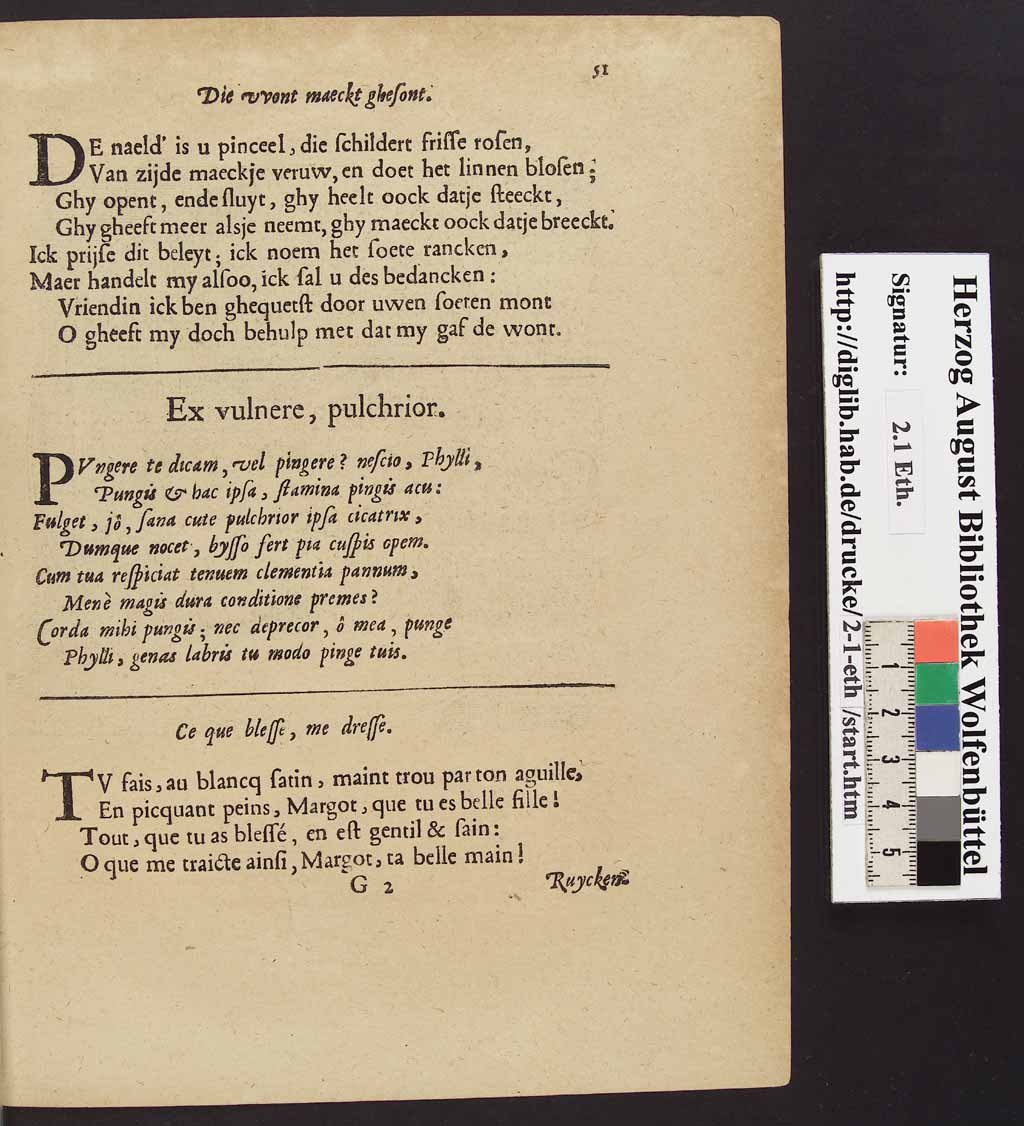 51
Die vvont maeckt ghesont.
DE naeld' is u pinceel, die schildert frisse rosen,
Van zijde maeckje veruw, en doet het linnen blosen;
Ghy opent, ende sluyt, ghy heelt oock datje steeckt,
Ghy gheeft meer alsje neemt, ghy maeckt oock datje breeckt.
Ick prijse dit beleyt; ick noem het soete rancken,
Maer handelt my alsoo, ick sal u des bedancken:
Vriendin ick ben ghequetst door uwen soeten mont
O gheeft my doch behulp met dat my gaf de wont.
Ex vulnere, pulchrior.
PVngere te dicam, vel pingere? nescio, Phylli,
Pungis & hac ipsa, stamina pingis acu:
Fulget, jô, sana cute pulchrior ipsa cicatrix,
Dumque nocet, bysso fert pia cuspis opem.
Cum tua respiciat tenuem clementia pannum,
Menè magis dura conditione premes?
Corda mihi pungis; nec deprecor, ô mea, punge
Phylli, genas labris tu modo pinge tuis.
Ce que blesse, me dresse.
TV fais, au blancq satin, maint trou par ton aguille,
En picquant peins, Margot, que tu es belle fille!
Tout, que tu as blessé, en est gentil & sain:
O que me traicte ainsi, Margot, ta belle main!
G 2 Ruycken
Herzog August Bibliothek Wolfenbüttel
Signatur: 2.1 Eth.
http://diglib.hab.de/drucke/2-1-eth/start.htm
1 2 3 4 5